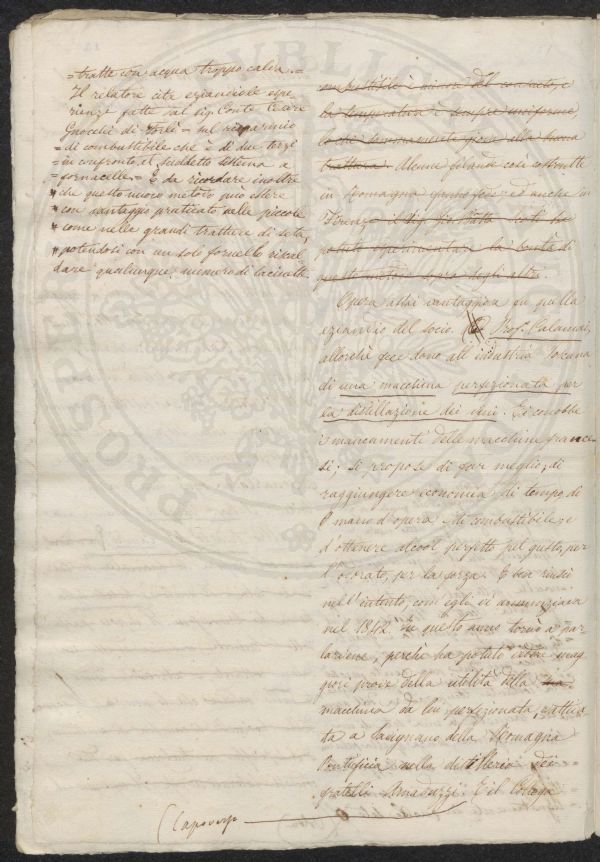 =tratta con acqua troppo calda.=
Il relatore cita eziandio espe
rienze fatte dal Sig. Conte Cesare
di Forlì = sul risparmio
= di combustibile che è di due terzi
= in confronto, il suddetto sistema a
= fornacelle.= È da ricordare inoltre
che questo nuovo metodo può essere
con vantaggio praticato nelle piccole
come nelle grandi tratture di seta,
potendosi con un solo fornello riscal
dare qualunque numero di bacinelle
combustibile è minore del consueto, e
la temperatura è sempre uniforme
lo che sommamente giova alla buona
trattura. Alcune filande così costrutte
in Romagna ed anche in
Firenze il Sig.
potuto sperimentare la bontà di
questo metodo sopra degli altri.
Opera assai vantaggiosa fu quella
eziandio del socio. Prof. Calamai,
allorchè fece dono all'industria Toscana
di una macchina perfezionata per
la distillazione dei vini. Ei conobbe
i mancamenti delle macchine france
si; si propose di far meglio, di
raggiungere economia di tempo, di
mano d'opera di combustibile, e
d'ottenere alcool perfetto pel gusto, per
l'odorato, per la forza. E ben riuscì
nell'intento, com'egli vi annunziava
nel 1842. In questo anno tornò a par
larvene, perchè ha potuto avere mag
giori prove della utilità della
macchina da lui perfezionata, attiva
ta a Savignano della Romagna
Pontificia nella distilleria dei
fratelli Amaduzzi. E il Collega
(Capoverso